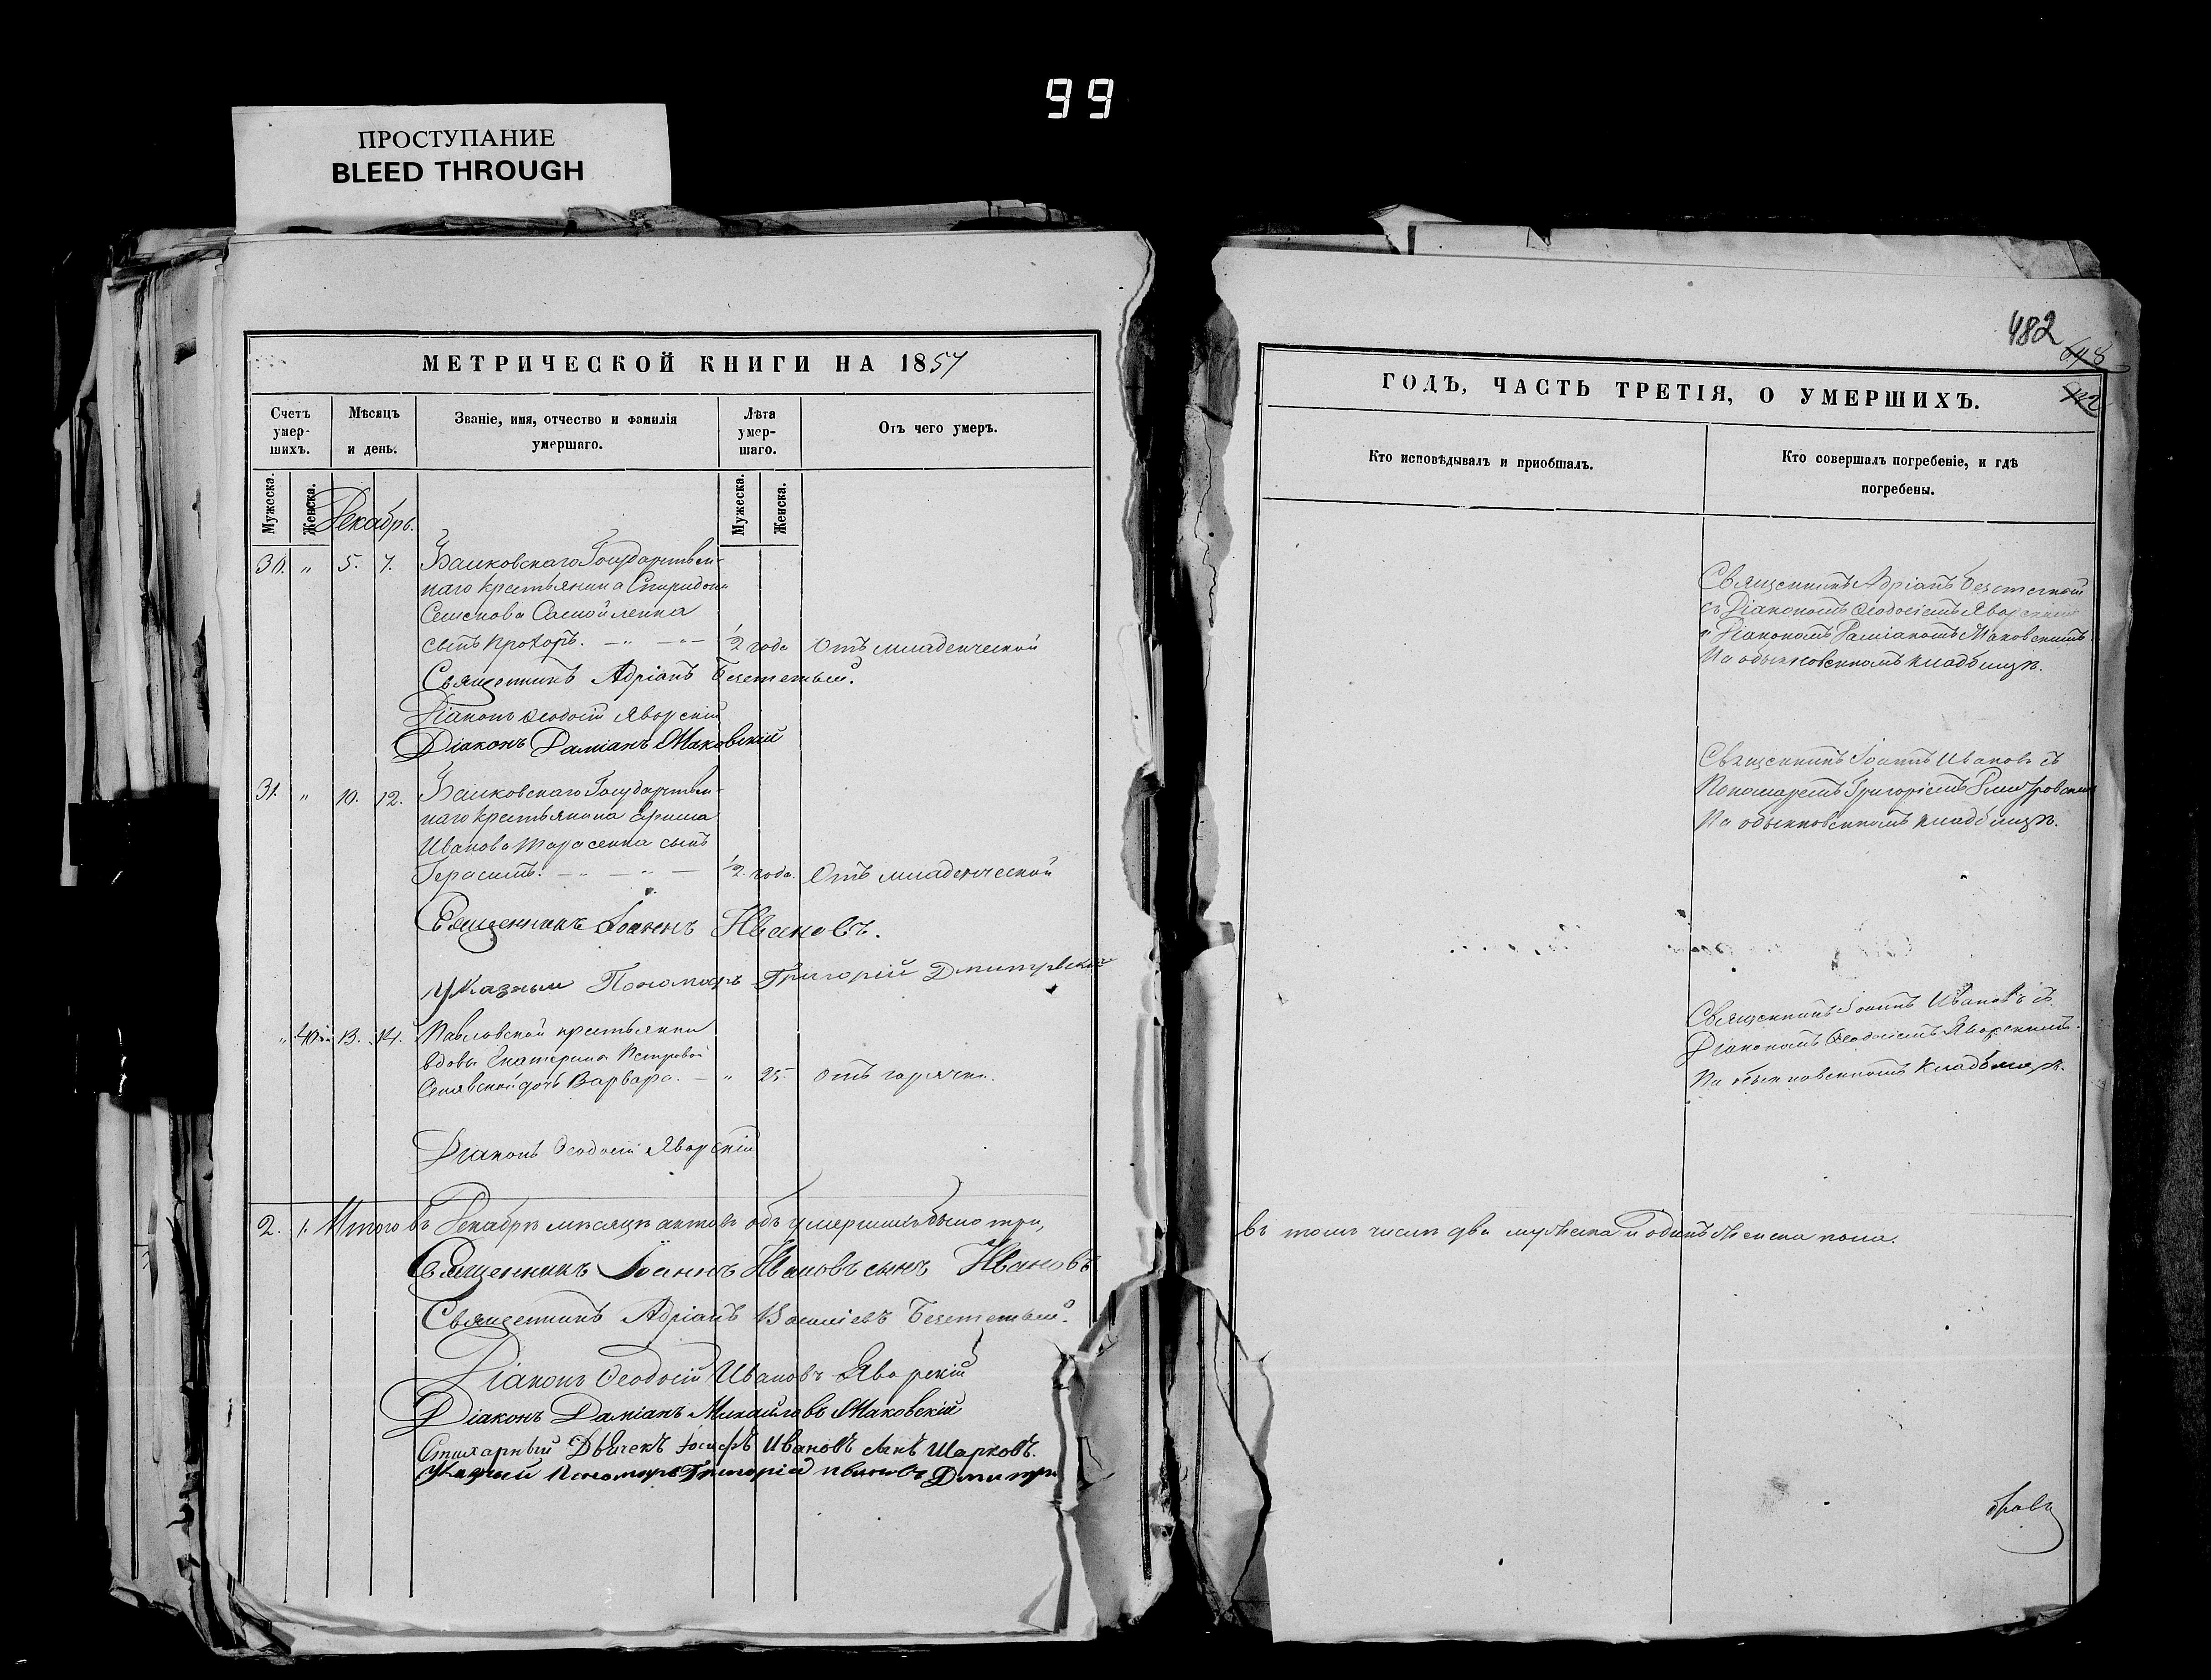 99
ПРОСТУПАНИЕ
BLEED THROUGH
МЕТРИЧЕСКОЙ КНИГИ НА 1857
Счетъ умер-шихъ.
Мѣсяцъ и день.
Званіе, имя, отчество и фамилія умершаго.
Лѣта умер-шаго.
Отъ чего умеръ.
Мужеска.
Женска.
Мужеска.
Женска.
Декабрь.
30. " 5. 7. Государствен-
наго крестьянина Спиридона
Семенова Самойленка
сынъ Прохоръ. 1/2 года Отъ младенческой
Священникъ Адріанъ
Діаконъ Ѳеодосій Яворскій
Діаконъ Даміанъ Маковскій
31. " 10. 12. Государствен-
наго крестьянина
Иванова Тарасенка сынъ
Герасимъ. 1/2 года. Отъ младенческой
Священникъ Іоаннъ Ивановъ.
Указный Пономарь Григорій
" 13. 14. Павловской крестьянки
вдовы Екатерины Петровой
дочь Варвара. " 25. Отъ горячки.
Діаконъ Ѳеодосій Яворскій
2. 1. Итого въ Декабрѣ мѣсяцѣ актовъ объ умершихъ было три,
Священникъ Іоаннъ Ивановъ сынъ Ивановъ
Священникъ Адріанъ
Діаконъ Ѳеодосій Ивановъ Яворскій
Діаконъ Даміанъ Михайловъ Маковскій
Стихарный Дьячекъ Іосифъ Ивановъ сынъ Шарковъ.
Указный Пономарь Григорій Ивановъ Дмитр
482
ГОДЪ, ЧАСТЬ ТРЕТІЯ, О УМЕРШИХЪ.
Кто исповѣдывалъ и приобщалъ.
Кто совершалъ погребеніе, и гдѣ погребены.
Священникъ Адріанъ
съ Діакономъ Ѳеодосіемъ Яворскимъ
и Діакономъ Даміаномъ Маковскимъ.
На обыкновенномъ кладбищѣ.
Священникъ Іоаннъ Ивановъ съ
Пономаремъ Григоріемъ
На обыкновенномъ кладбищѣ.
Священникъ Іоаннъ Ивановъ съ
Діакономъ Ѳеодосіемъ Яворскимъ.
На обыкновенномъ кладбищѣ.
въ томъ числѣ два мужеска и одинъ женска пола.